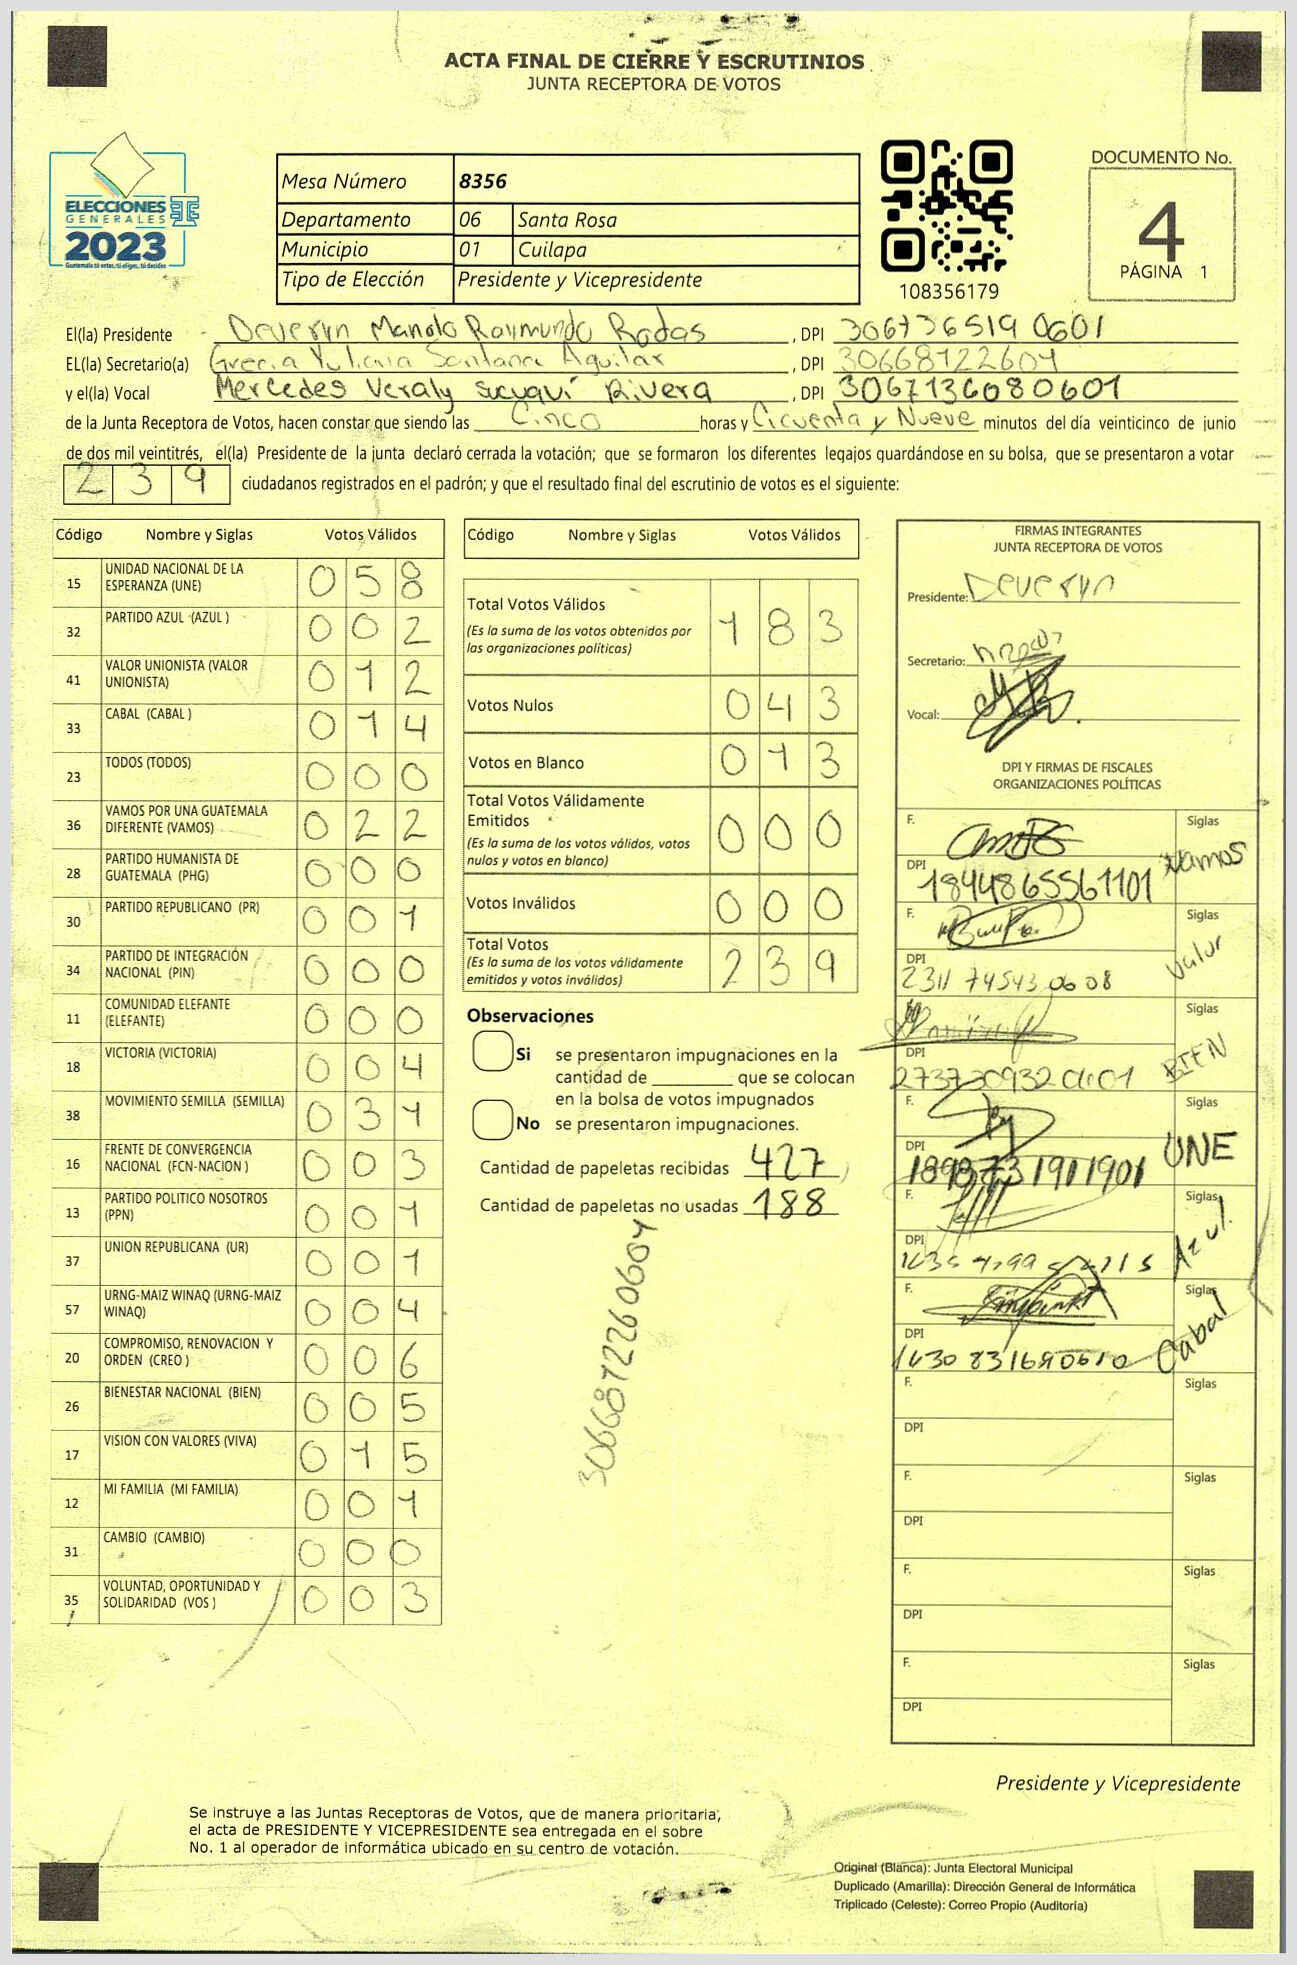 ACTA FINAL DE CIERRE Y ESCRUTINIOS
JUNTA RECEPTORA DE VOTOS
ELECCIONES
GENERALES
2023
Guatemala tú votas, tú eliges, tú decides
Mesa Número 8356
Departamento 06 Santa Rosa
Municipio 01 Cuilapa
Tipo de Elección Presidente y Vicepresidente
108356179
DOCUMENTO No.
4
PÁGINA 1
El(la) Presidente Deveryn Manolo Raymundo Rodas , DPI 306736519 0601
EL(la) Secretario(a) Grecia Yuliana Santana Aguilar , DPI 30668722604
y el(la) Vocal Mercedes Veraly Sucuquí Rivera , DPI 3067136080601
de la Junta Receptora de Votos, hacen constar que siendo las Cinco horas y Cicuenta y Nueve minutos del día veinticinco de junio
de dos mil veintitrés, el(la) Presidente de la junta declaró cerrada la votación; que se formaron los diferentes legajos guardándose en su bolsa, que se presentaron a votar
239 ciudadanos registrados en el padrón; y que el resultado final del escrutinio de votos es el siguiente:
Código Nombre y Siglas Votos Válidos
15 UNIDAD NACIONAL DE LA ESPERANZA (UNE) 0 5 8
32 PARTIDO AZUL (AZUL ) 0 0 2
41 VALOR UNIONISTA (VALOR UNIONISTA) 0 1 2
33 CABAL (CABAL ) 0 1 4
23 TODOS (TODOS) 0 0 0
36 VAMOS POR UNA GUATEMALA DIFERENTE (VAMOS) 0 2 2
28 PARTIDO HUMANISTA DE GUATEMALA (PHG) 0 0 0
30 PARTIDO REPUBLICANO (PR) 0 0 1
34 PARTIDO DE INTEGRACIÓN NACIONAL (PIN) 0 0 0
11 COMUNIDAD ELEFANTE (ELEFANTE) 0 0 0
18 VICTORIA (VICTORIA) 0 0 4
38 MOVIMIENTO SEMILLA (SEMILLA) 0 3 1
16 FRENTE DE CONVERGENCIA NACIONAL (FCN-NACION ) 0 0 3
13 PARTIDO POLITICO NOSOTROS (PPN) 0 0 1
37 UNION REPUBLICANA (UR) 0 0 1
57 URNG-MAIZ WINAQ (URNG-MAIZ WINAQ) 0 0 4
20 COMPROMISO, RENOVACION Y ORDEN (CREO ) 0 0 6
26 BIENESTAR NACIONAL (BIEN) 0 0 5
17 VISION CON VALORES (VIVA) 0 1 5
12 MI FAMILIA (MI FAMILIA) 0 0 1
31 CAMBIO (CAMBIO) 0 0 0
35 VOLUNTAD, OPORTUNIDAD Y SOLIDARIDAD (VOS ) 0 0 3
Código Nombre y Siglas Votos Válidos
Total Votos Válidos 1 8 3
(Es la suma de los votos obtenidos por
las organizaciones políticas)
Votos Nulos 0 4 3
Votos en Blanco 0 1 3
Total Votos Válidamente
Emitidos 0 0 0
(Es la suma de los votos válidos, votos
nulos y votos en blanco)
Votos Inválidos 0 0 0
Total Votos 2 3 9
(Es la suma de los votos válidamente
emitidos y votos inválidos)
Observaciones
Si se presentaron impugnaciones en la
cantidad de que se colocan
en la bolsa de votos impugnados
No se presentaron impugnaciones.
Cantidad de papeletas recibidas 427
Cantidad de papeletas no usadas 188
FIRMAS INTEGRANTES
JUNTA RECEPTORA DE VOTOS
Presidente: Deveryn
Secretario:
Vocal:
DPI Y FIRMAS DE FISCALES
ORGANIZACIONES POLÍTICAS
F. Siglas Vamos
DPI 1844865561101
F. Siglas Valor
DPI 2311 74543 0608
F. Siglas BIEN
DPI
F. Siglas UNE
DPI
F. Siglas Azul.
DPI
F. Siglas Cabal
DPI
F. Siglas
DPI
F. Siglas
DPI
F. Siglas
DPI
F. Siglas
DPI
Presidente y Vicepresidente
Se instruye a las Juntas Receptoras de Votos, que de manera prioritaria,
el acta de PRESIDENTE Y VICEPRESIDENTE sea entregada en el sobre
No. 1 al operador de informática ubicado en su centro de votación.
Original (Blanca): Junta Electoral Municipal
Duplicado (Amarilla): Dirección General de Informática
Triplicado (Celeste): Correo Propio (Auditoría)